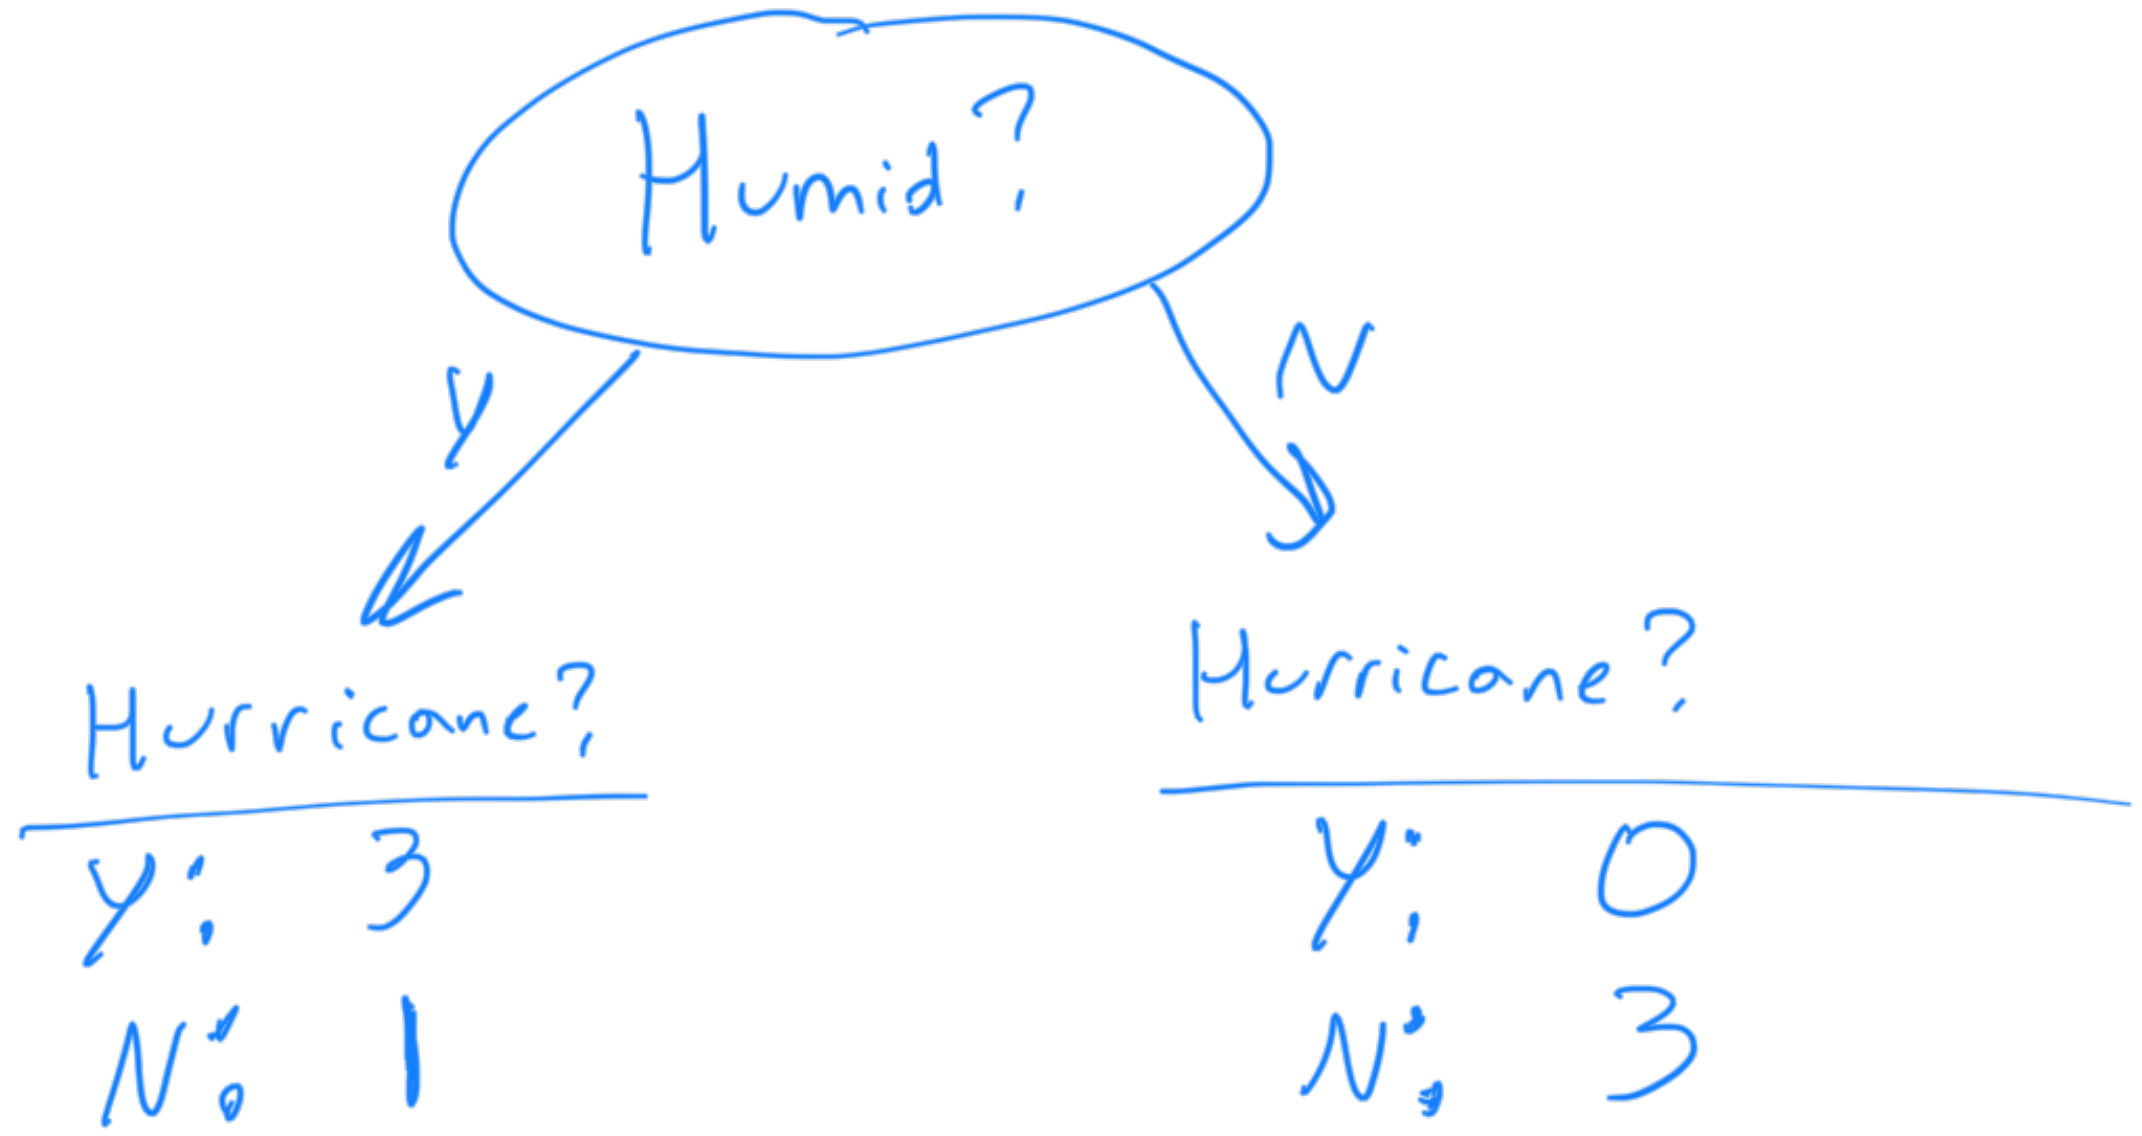 Humid?
Y
N
Hurricane?
Y: 3
N: 1
Hurricane?
Y: 0
N: 3